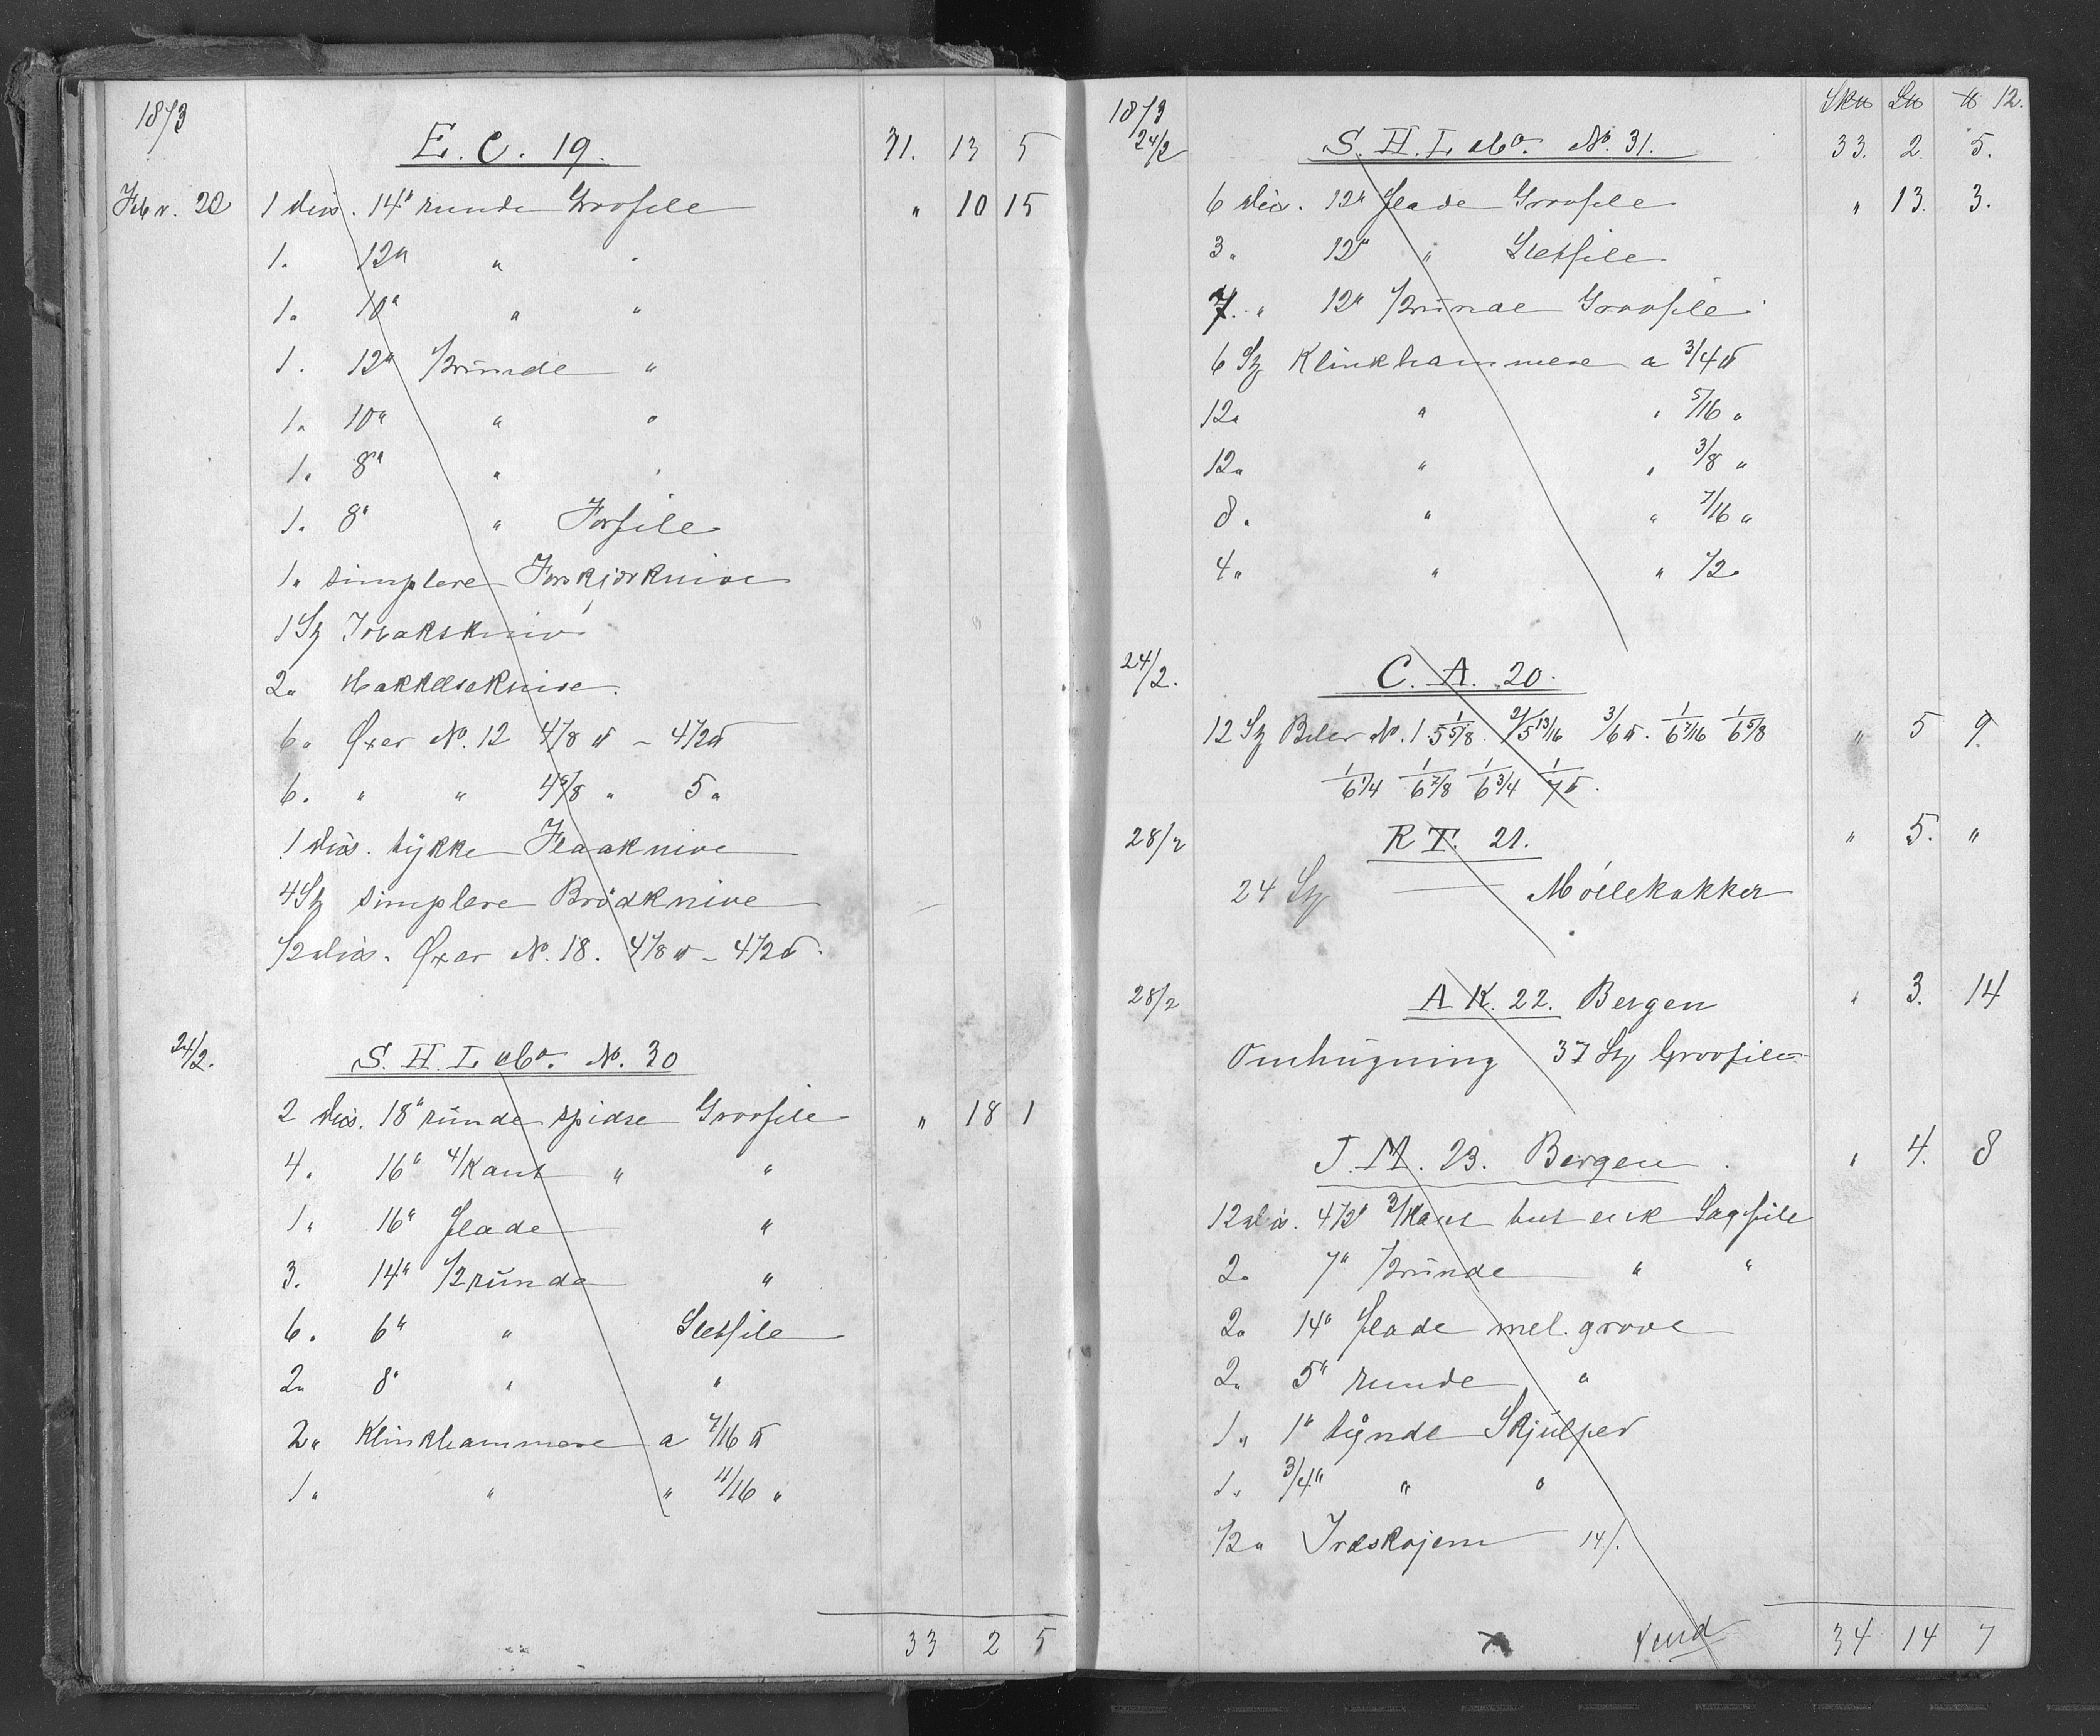 1873
E. C. 19. 31. 13 5
Febr. 20 1 dus. 14" runde Groofile " 10 15
1. 12" " "
1" 10" " "
1. 12" 1/2 runde "
1" 10" " "
1" 8" " "
1" 8" " Forfile
1" simplere Forskjærknive
1 St Tobakskniv
2" Hakkelseknive.
6" Øxer No. 12 4 1/8 ℔ – 4 1/2 ℔
6" " " 4 5/8 " 5 "
1 dus. tykke Flaaknive
4 St simplere Brödknive
1/2 dus. Øxer No. 18. 4 1/8 ℔ – 4 1/2 ℔.
24/2. S. H. L. & Co. No. 30
2 dus. 18" runde spidse Groofile " 18 1
4. 16" 4/Kant " "
1" 16" flade "
3. 14" 1/2 runde "
6. 6" " Sletfile
2" 8" " "
2" Klinkhammere a 7/16 ℔
1" " " 11/16 "
33 2 5
1873 Sk℔ L℔ ℔ 12.
24/2 S. H. L. & Co. No. 31. 33. 2. 5.
6 dus. 12" flade Groofile " 13. 3.
3" 12" " Sletfile
7. " 12" 1/2 runde Groofile
6 St Klinkhammere a 3/4 ℔
12" " " 5/16 "
12" " " 3/8 "
8" " " 7/16 "
4" " " 1/2 "
24/2. C. A. 20.
12 St Biler No. 1 1/5 5/8 2/5 13/16 3/6 ℔. 1/6 7/16 1/6 5/8 " 5 9.
1/6 1/4 1/6 7/8 1/6 3/4 1/7 ℔.
28/2 R T. 21. " 5. "
24 St Möllehakker
28/2 A K. 22. Bergen " 3. 14
Omhugning 37 St Groofile
J. M. 23. Bergen " 4. 8
12 dus. 4 1/2" 3/Kant but enk Sagfile
2" 7" 1/2 runde " "
2" 14" flade mel. grove
2" 5" runde "
1" 1" tynde Skjulper
1" 3/4" " "
1/2" Træskojern 14/.
34 14 7